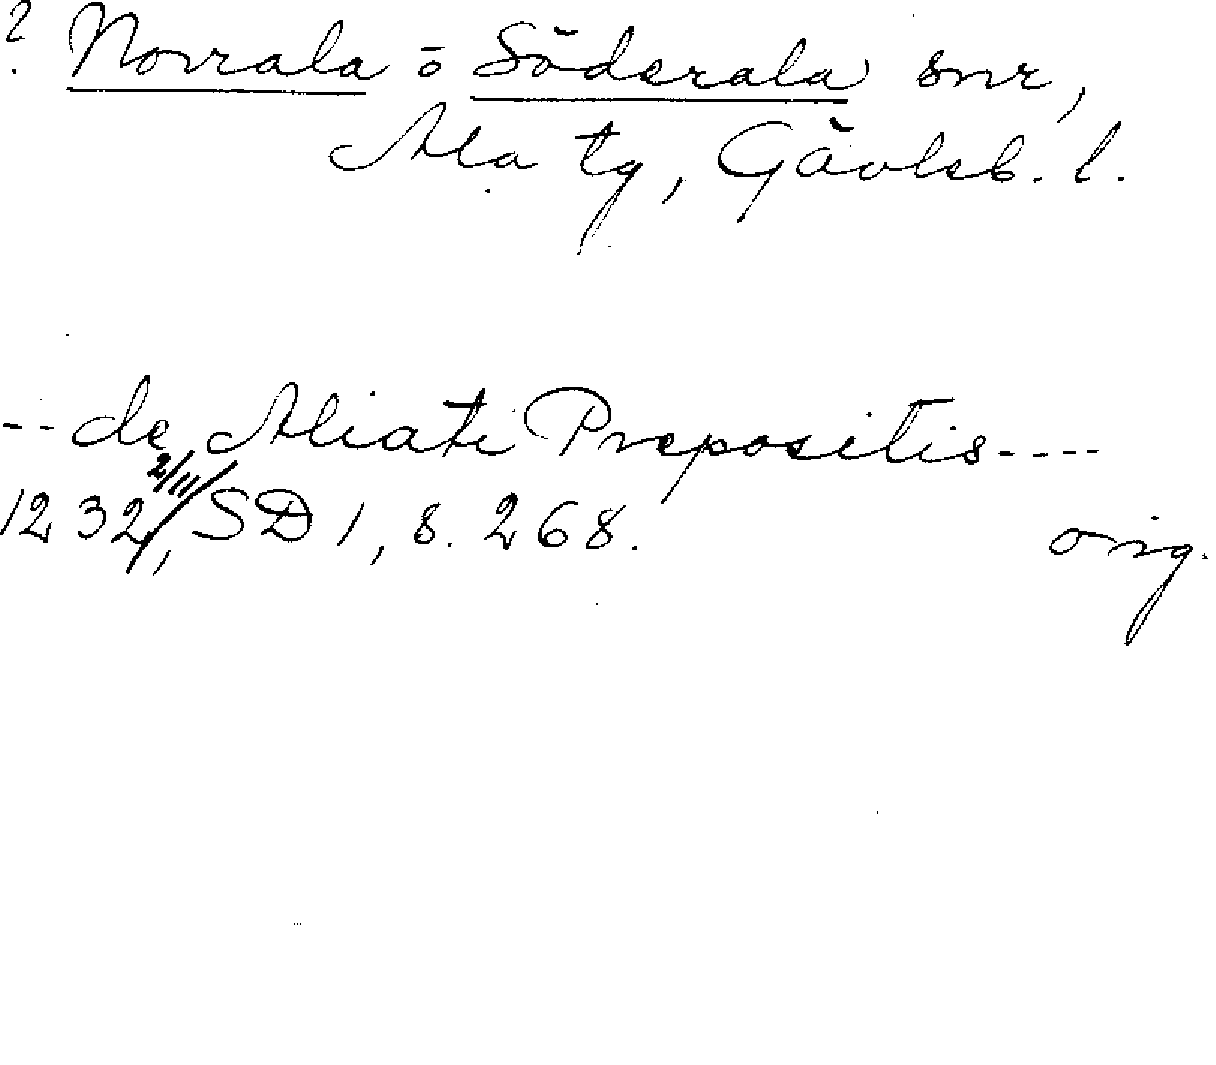 ? Norrala o Söderala snr,
Ala tg, Gävleb. l.
-- de Aliati Prepositis ----
2/11
1232, SD 1, s. 268.
orig.